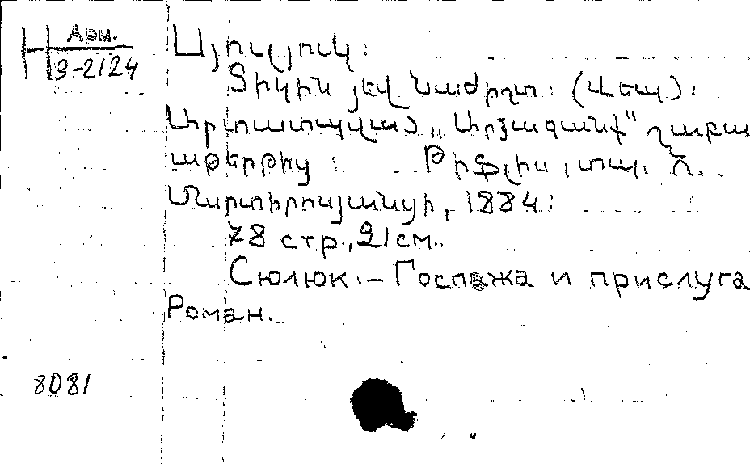 Арм.
Н 9-2124
Սյուլյուկ։
Տիկին յեվ նաժիշտ։ (Վեպ)։
Արտատպված „Արձագանք“ շաբա
աթերթից։ Թիֆլիս, տպ. Մ.
Մարտիրոսյանցի, 1884։
78 стр., 21 см.
Сюлюк. – Госпожа и прислуга
Роман.
8081